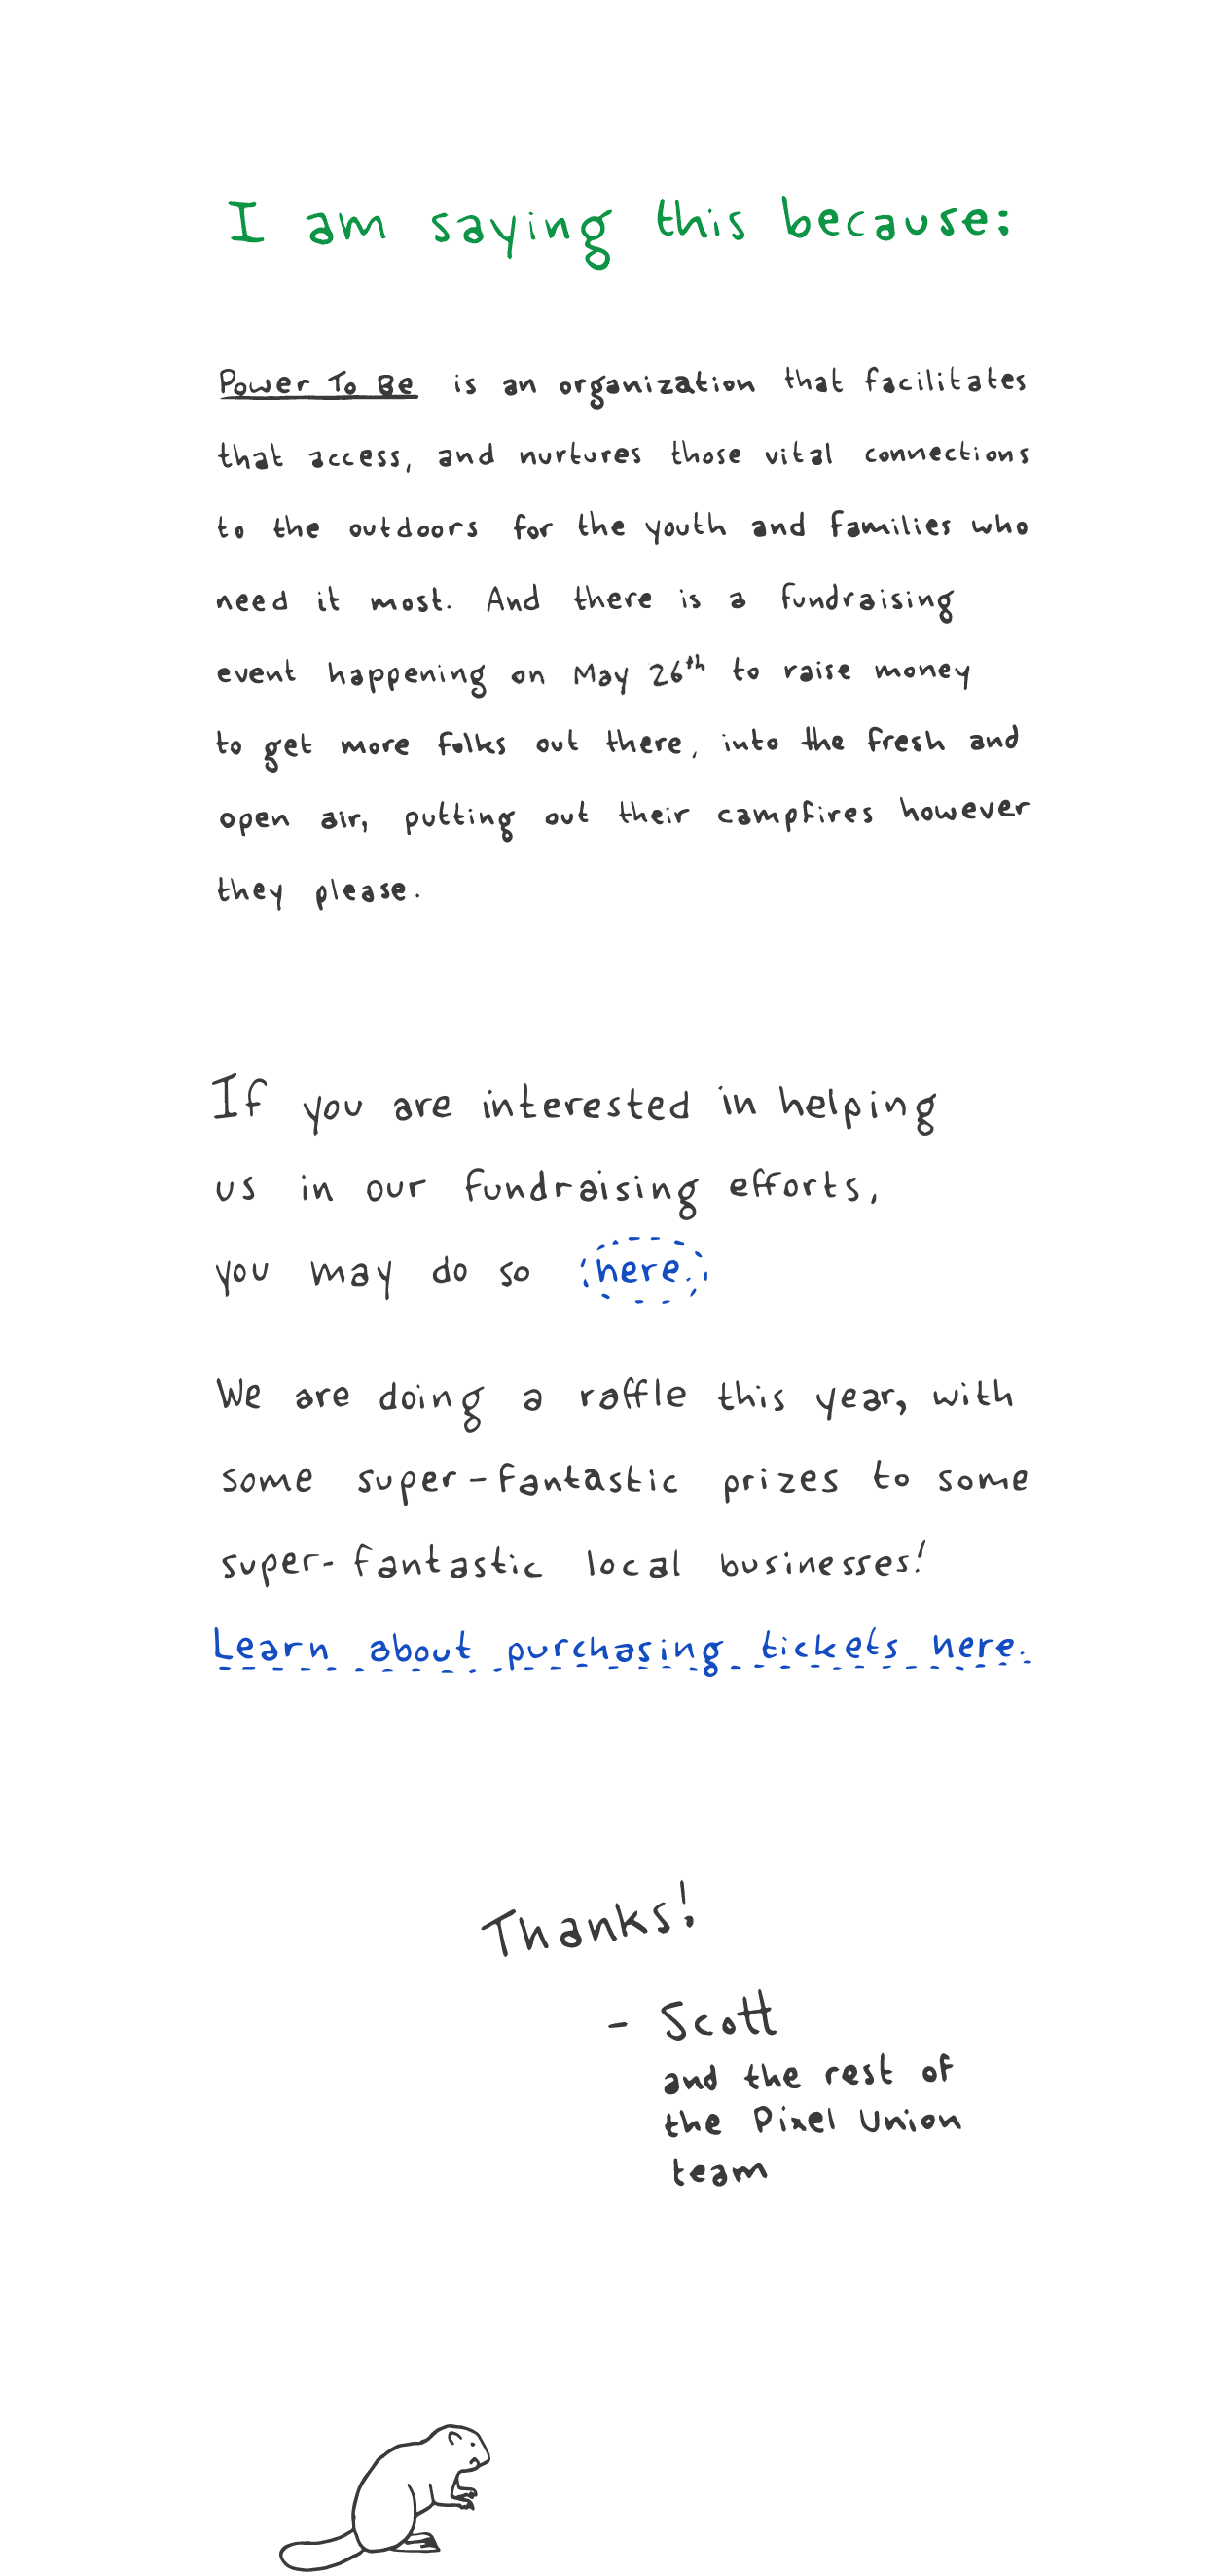 I am saying this because:
Power To Be is an organization that facilitates
that access, and nurtures those vital connections
to the outdoors for the youth and families who
need it most. And there is a fundraising
event happening on May 26th to raise money
to get more folks out there, into the fresh and
open air, putting out their campfires however
they please.
If you are interested in helping
us in our fundraising efforts,
you may do so here.
We are doing a raffle this year, with
some super-fantastic prizes to some
super-fantastic local businesses!
Learn about purchasing tickets here.
Thanks!
- Scott
and the rest of
the Pixel Union
team